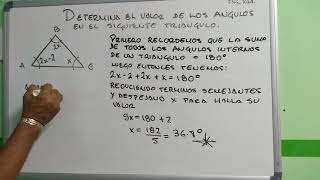 DETERMINA EL VALOR DE LOS ANGULOS
EN EL SIGUIENTE TRIANGULO.
B
2x
A
2x-2
x
C
PRIMERO RECORDEMOS QUE LA SUMA
DE TODOS LOS ANGULOS INTERNOS
DE UN TRIANGULO = 180°
LUEGO ENTONCES TENEMOS:
2x-2+2x+x=180°
REDUCIENDO TERMINOS SEMEJANTES
Y DESPEJANDO X PARA HALLAR SU
VALOR
5x = 180 + 2
x = 182/5 = 36.4°